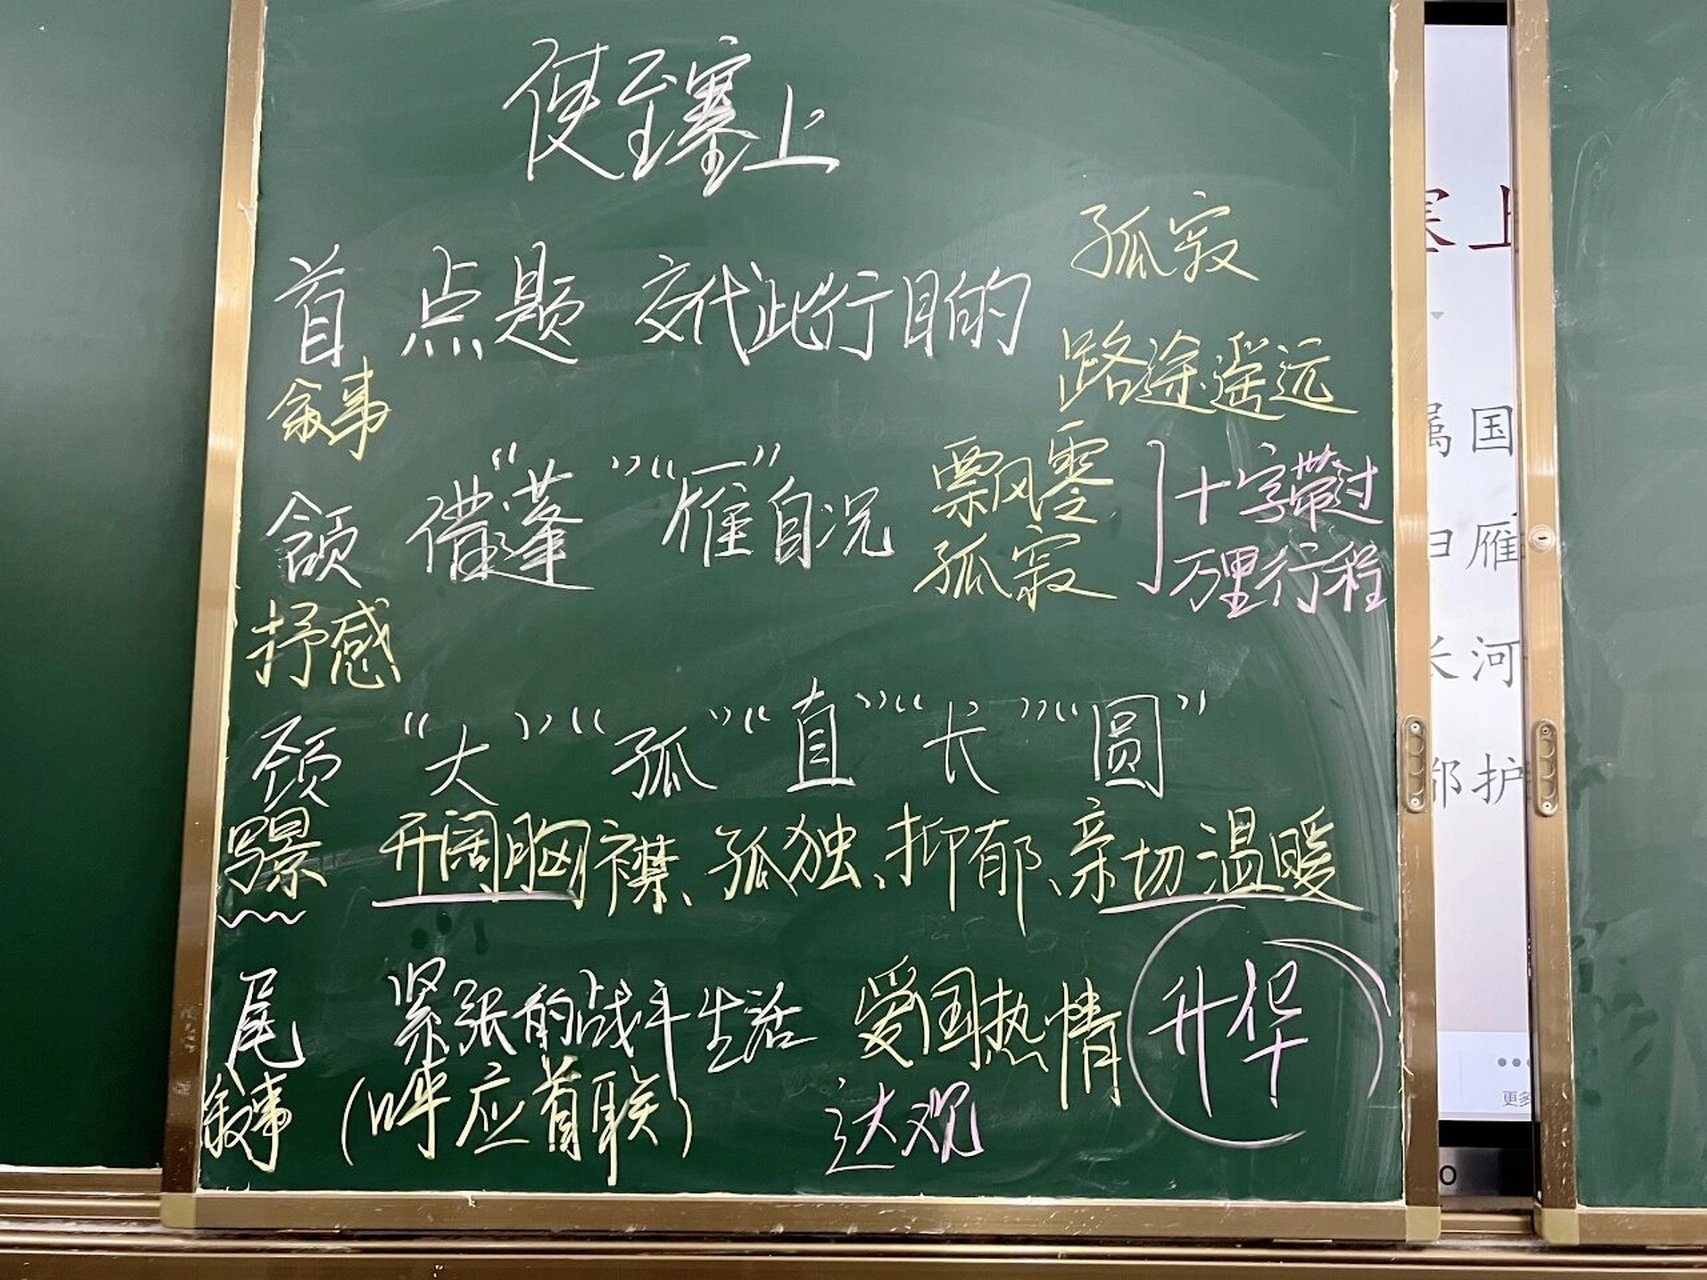 使至塞上
孤寂
首 点题 交代此行目的
路途遥远
叙事
颔 借“蓬”“雁”自况 飘零 孤寂 十字带过 万里行程
抒感
颈 “大”“孤”“直”“长”“圆”
写景 开阔胸襟、孤独、抑郁、亲切温暖
尾 紧张的战斗生活 爱国热情 升华
叙事 (呼应首联) 达观
塞上
属国
归雁
长河
都护
更多